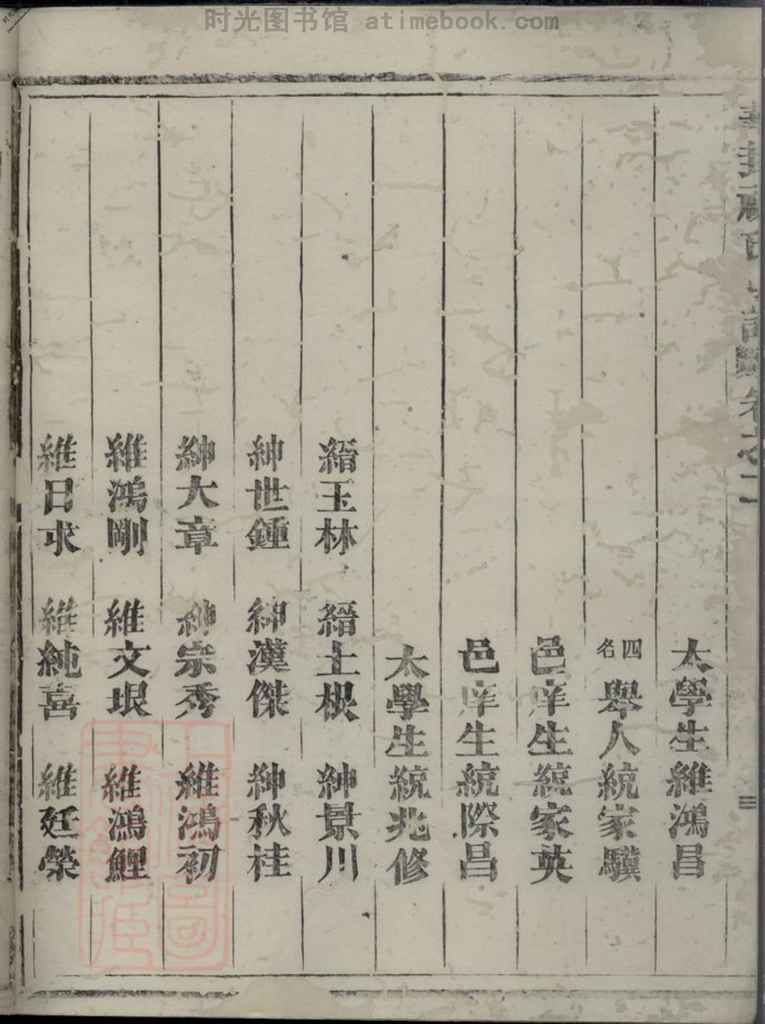 时光图书馆 atimebook.com
卷之二
三
太學生維鴻昌
四名 舉人統家驥
邑庠生統家英
邑庠生統際昌
太學生統兆修
縉玉林 縉士根 紳景川
紳世鍾 紳漢傑 紳秋桂
紳大章 紳宗秀 維鴻初
維鴻剛 維文珢 維鴻鯉
維日求 維純喜 維廷榮